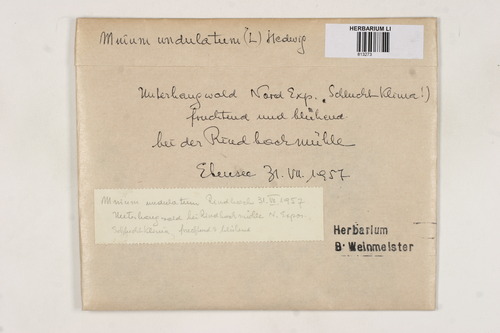 Mnium undulatum (L) Hedwig
HERBARIUM LI
Unterhangwald Nord Exp. (Schlucht-Klima!)
fruchtend und blühend
bei der Rindbachmühle
Ebensee 31. VII. 1957
Mnium undulatum Rindbach 31. VII 1957
Unterhangwald bei Rindbachmühle N.
Schluchtklima, fruchtend & blühend
Herbarium
B. Weinmeister